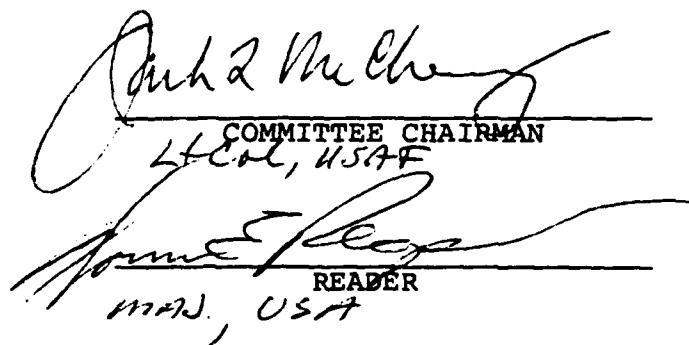 Jack L McCheney
COMMITTEE CHAIRMAN
Lt Col, USAF
E
READER
MAJ., USA